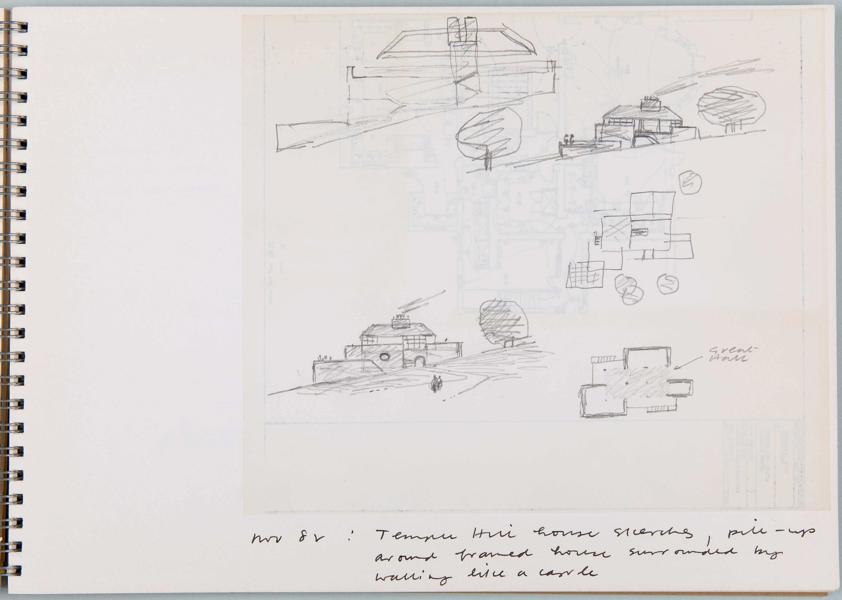 Great
Hall
Nov 82 : Temple Hill house sketches, pile-up
around framed house surrounded by
walling like a castle